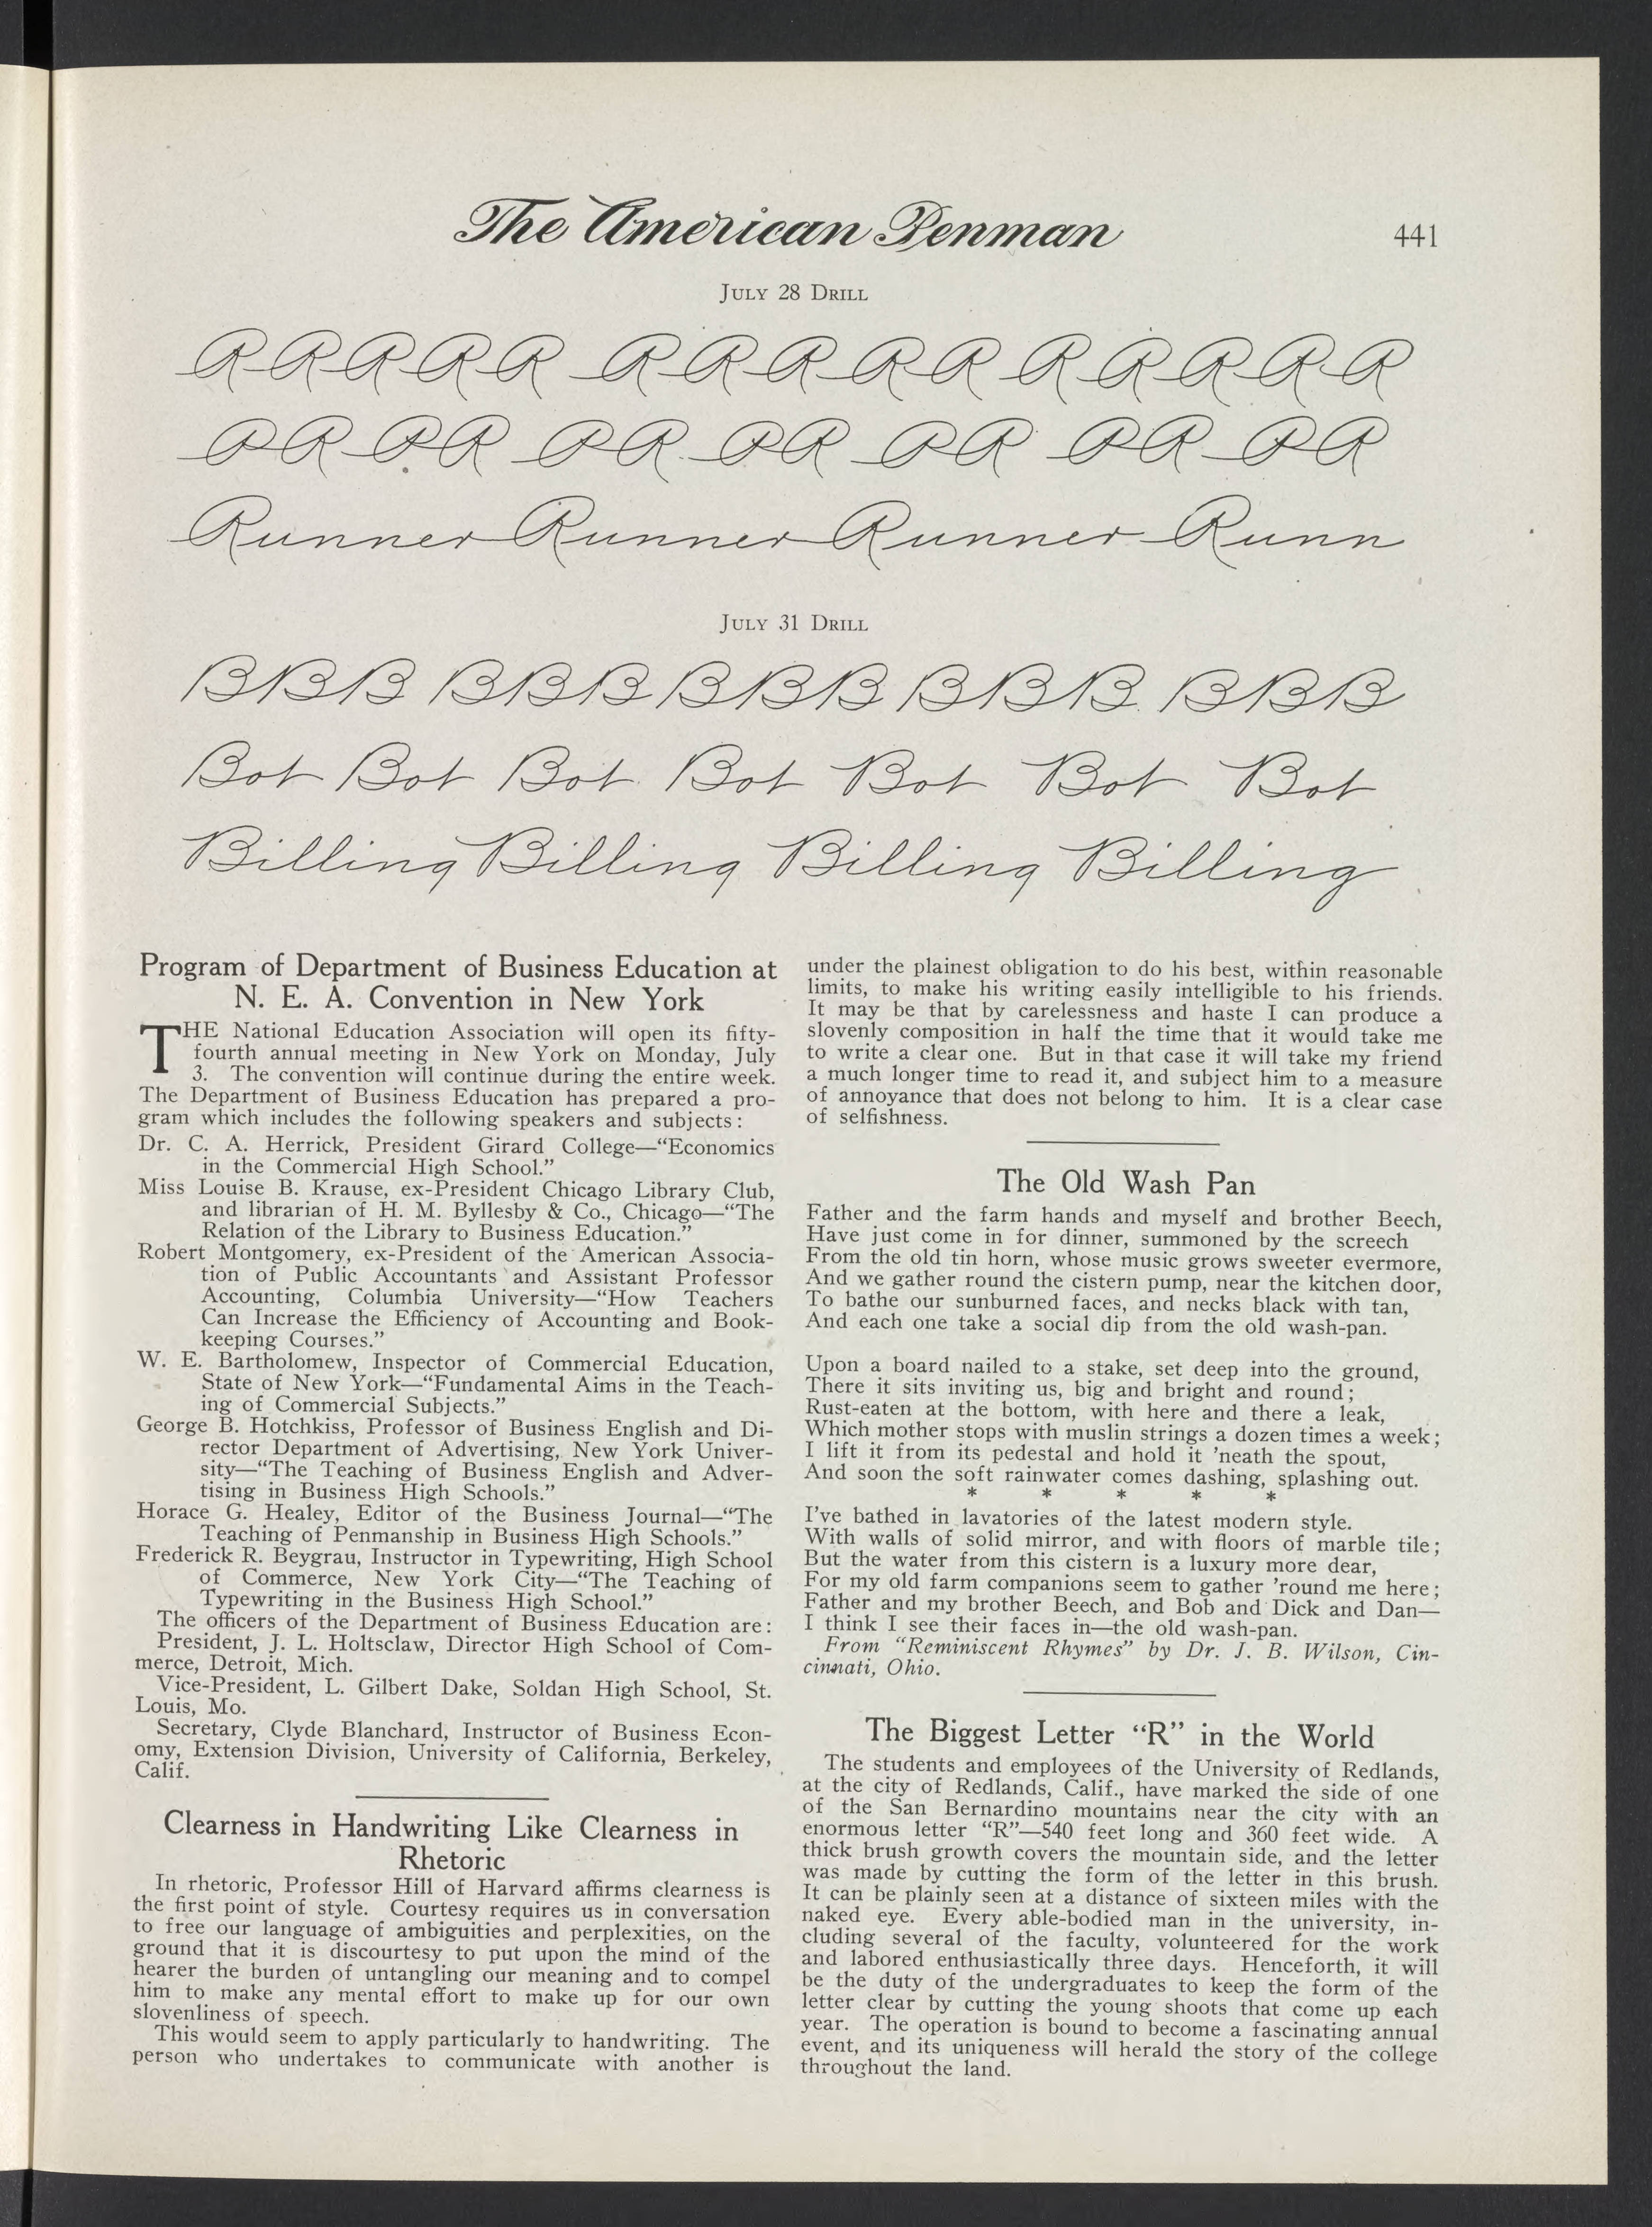 The American Penman
441
July 28 Drill
R R R R R R R R R R R R R R R
R R R R R R R R R R R R R R
Runner Runner Runner Runn
July 31 Drill
B B B B B B B B B B B B B B B
Bot Bot Bot Bot Bot Bot Bot
Billing Billing Billing Billing
Program of Department of Business Education at
N. E. A. Convention in New York
THE National Education Association will open its fifty-
fourth annual meeting in New York on Monday, July
3. The convention will continue during the entire week.
The Department of Business Education has prepared a pro-
gram which includes the following speakers and subjects:
Dr. C. A. Herrick, President Girard College—“Economics
in the Commercial High School.”
Miss Louise B. Krause, ex-President Chicago Library Club,
and librarian of H. M. Byllesby & Co., Chicago—“The
Relation of the Library to Business Education.”
Robert Montgomery, ex-President of the American Associa-
tion of Public Accountants and Assistant Professor
Accounting, Columbia University—“How Teachers
Can Increase the Efficiency of Accounting and Book-
keeping Courses.”
W. E. Bartholomew, Inspector of Commercial Education,
State of New York—“Fundamental Aims in the Teach-
ing of Commercial Subjects.”
George B. Hotchkiss, Professor of Business English and Di-
rector Department of Advertising, New York Univer-
sity—“The Teaching of Business English and Adver-
tising in Business High Schools.”
Horace G. Healey, Editor of the Business Journal—“The
Teaching of Penmanship in Business High Schools.”
Frederick R. Beygrau, Instructor in Typewriting, High School
of Commerce, New York City—“The Teaching of
Typewriting in the Business High School.”
The officers of the Department of Business Education are:
President, J. L. Holtsclaw, Director High School of Com-
merce, Detroit, Mich.
Vice-President, L. Gilbert Dake, Soldan High School, St.
Louis, Mo.
Secretary, Clyde Blanchard, Instructor of Business Econ-
omy, Extension Division, University of California, Berkeley,
Calif.
Clearness in Handwriting Like Clearness in
Rhetoric
In rhetoric, Professor Hill of Harvard affirms clearness is
the first point of style. Courtesy requires us in conversation
to free our language of ambiguities and perplexities, on the
ground that it is discourtesy to put upon the mind of the
hearer the burden of untangling our meaning and to compel
him to make any mental effort to make up for our own
slovenliness of speech.
This would seem to apply particularly to handwriting. The
person who undertakes to communicate with another is
under the plainest obligation to do his best, within reasonable
limits, to make his writing easily intelligible to his friends.
It may be that by carelessness and haste I can produce a
slovenly composition in half the time that it would take me
to write a clear one. But in that case it will take my friend
a much longer time to read it, and subject him to a measure
of annoyance that does not belong to him. It is a clear case
of selfishness.
The Old Wash Pan
Father and the farm hands and myself and brother Beech,
Have just come in for dinner, summoned by the screech
From the old tin horn, whose music grows sweeter evermore,
And we gather round the cistern pump, near the kitchen door,
To bathe our sunburned faces, and necks black with tan,
And each one take a social dip from the old wash-pan.
Upon a board nailed to a stake, set deep into the ground,
There it sits inviting us, big and bright and round;
Rust-eaten at the bottom, with here and there a leak,
Which mother stops with muslin strings a dozen times a week;
I lift it from its pedestal and hold it ’neath the spout,
And soon the soft rainwater comes dashing, splashing out.
* * * * *
I’ve bathed in lavatories of the latest modern style.
With walls of solid mirror, and with floors of marble tile;
But the water from this cistern is a luxury more dear,
For my old farm companions seem to gather ’round me here;
Father and my brother Beech, and Bob and Dick and Dan—
I think I see their faces in—the old wash-pan.
From “Reminiscent Rhymes” by Dr. J. B. Wilson, Cin-
cinnati, Ohio.
The Biggest Letter “R” in the World
The students and employees of the University of Redlands,
at the city of Redlands, Calif., have marked the side of one
of the San Bernardino mountains near the city with an
enormous letter “R”—540 feet long and 360 feet wide. A
thick brush growth covers the mountain side, and the letter
was made by cutting the form of the letter in this brush.
It can be plainly seen at a distance of sixteen miles with the
naked eye. Every able-bodied man in the university, in-
cluding several of the faculty, volunteered for the work
and labored enthusiastically three days. Henceforth, it will
be the duty of the undergraduates to keep the form of the
letter clear by cutting the young shoots that come up each
year. The operation is bound to become a fascinating annual
event, and its uniqueness will herald the story of the college
throughout the land.